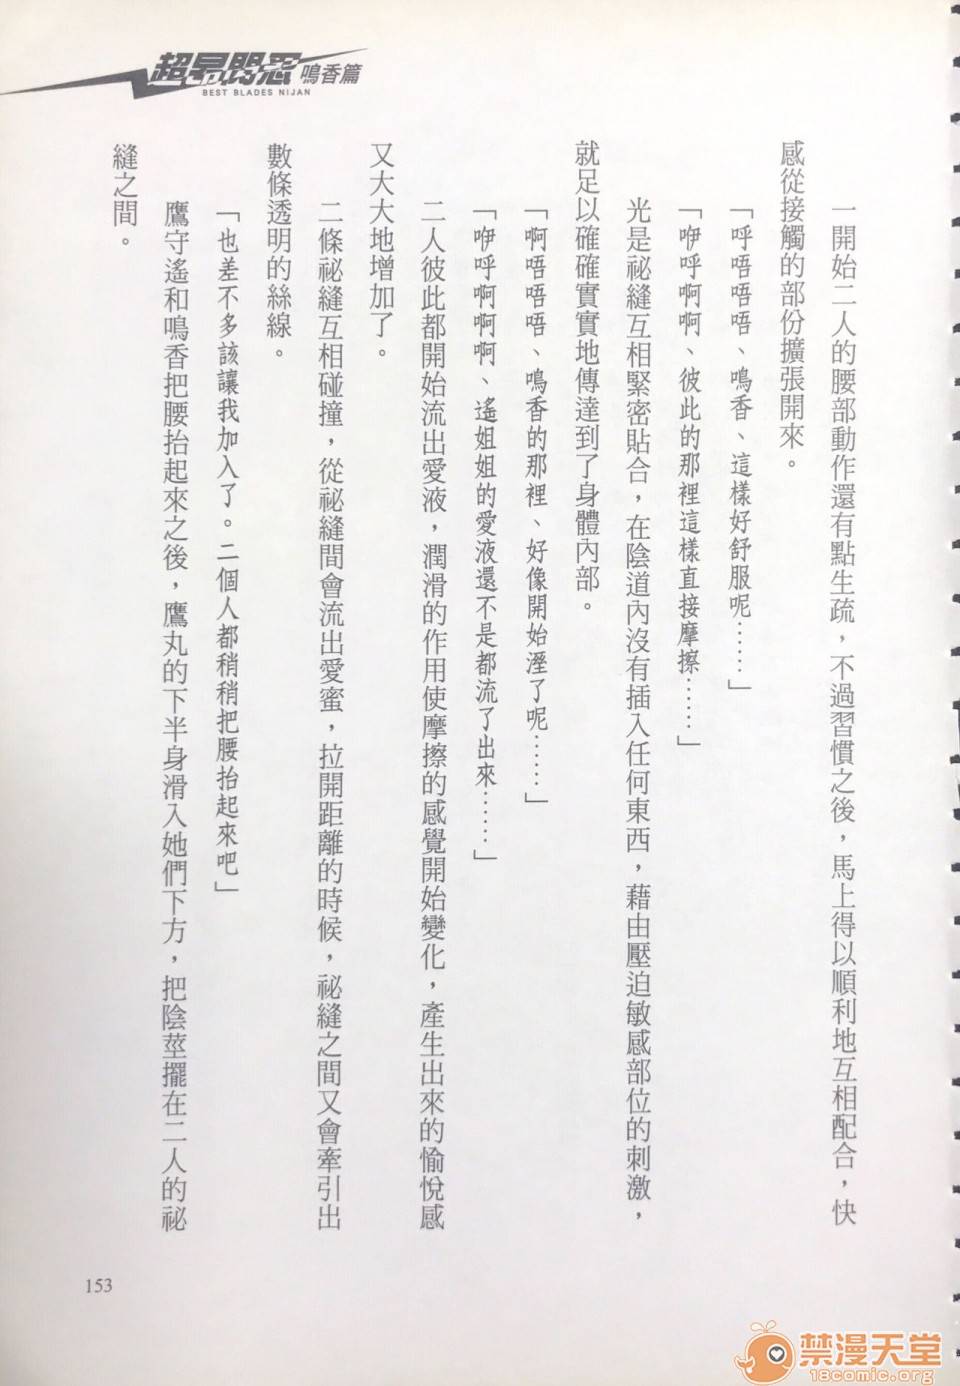 超昂閃忍 鳴香篇
BEST BLADES NIJAN
一開始二人的腰部動作還有點生疏，不過習慣之後，馬上得以順利地互相配合，快
感從接觸的部份擴張開來。
「呼唔唔唔、鳴香、這樣好舒服呢……」
「咿呼啊啊、彼此的那裡這樣直接摩擦……」
光是祕縫互相緊密貼合，在陰道內沒有插入任何東西，藉由壓迫敏感部位的刺激，
就足以確確實實地傳達到了身體內部。
「啊唔唔唔、鳴香的那裡、好像開始溼了呢……」
「咿呼啊啊啊、遙姐姐的愛液還不是都流了出來……」
二人彼此都開始流出愛液，潤滑的作用使摩擦的感覺開始變化，產生出來的愉悅感
又大大地增加了。
二條祕縫互相碰撞，從祕縫間會流出愛蜜，拉開距離的時候，祕縫之間又會牽引出
數條透明的絲線。
「也差不多該讓我加入了。二個人都稍稍把腰抬起來吧」
鷹守遙和鳴香把腰抬起來之後，鷹丸的下半身滑入她們下方，把陰莖擺在二人的祕
縫之間。
153
禁漫天堂
18comic.org